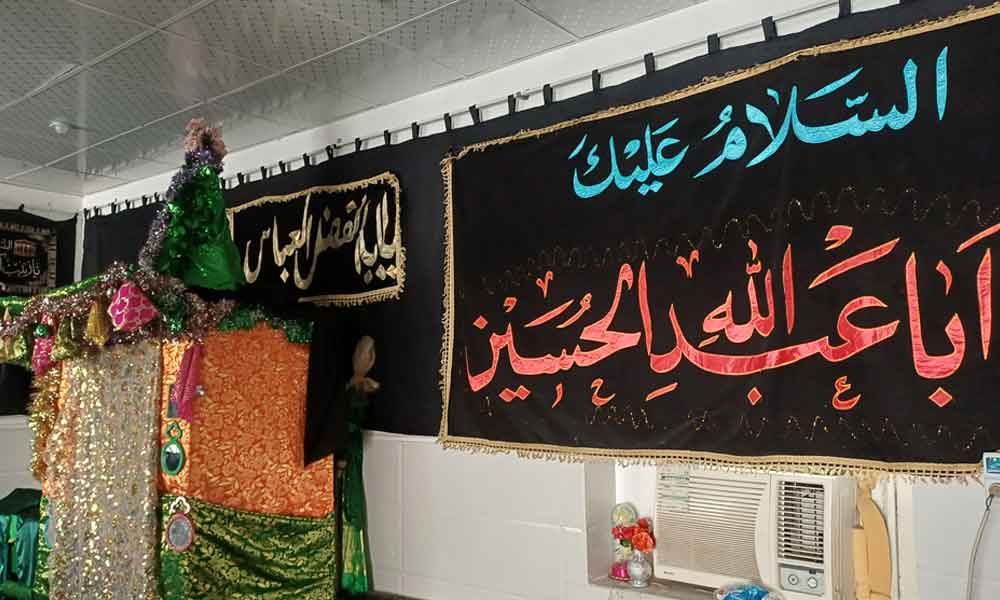 السَّلَامُ عَلَيْكَ
يَا أَبَا عَبْدِ اللهِ الْحُسَيْن
يا ابا الفضل العباس